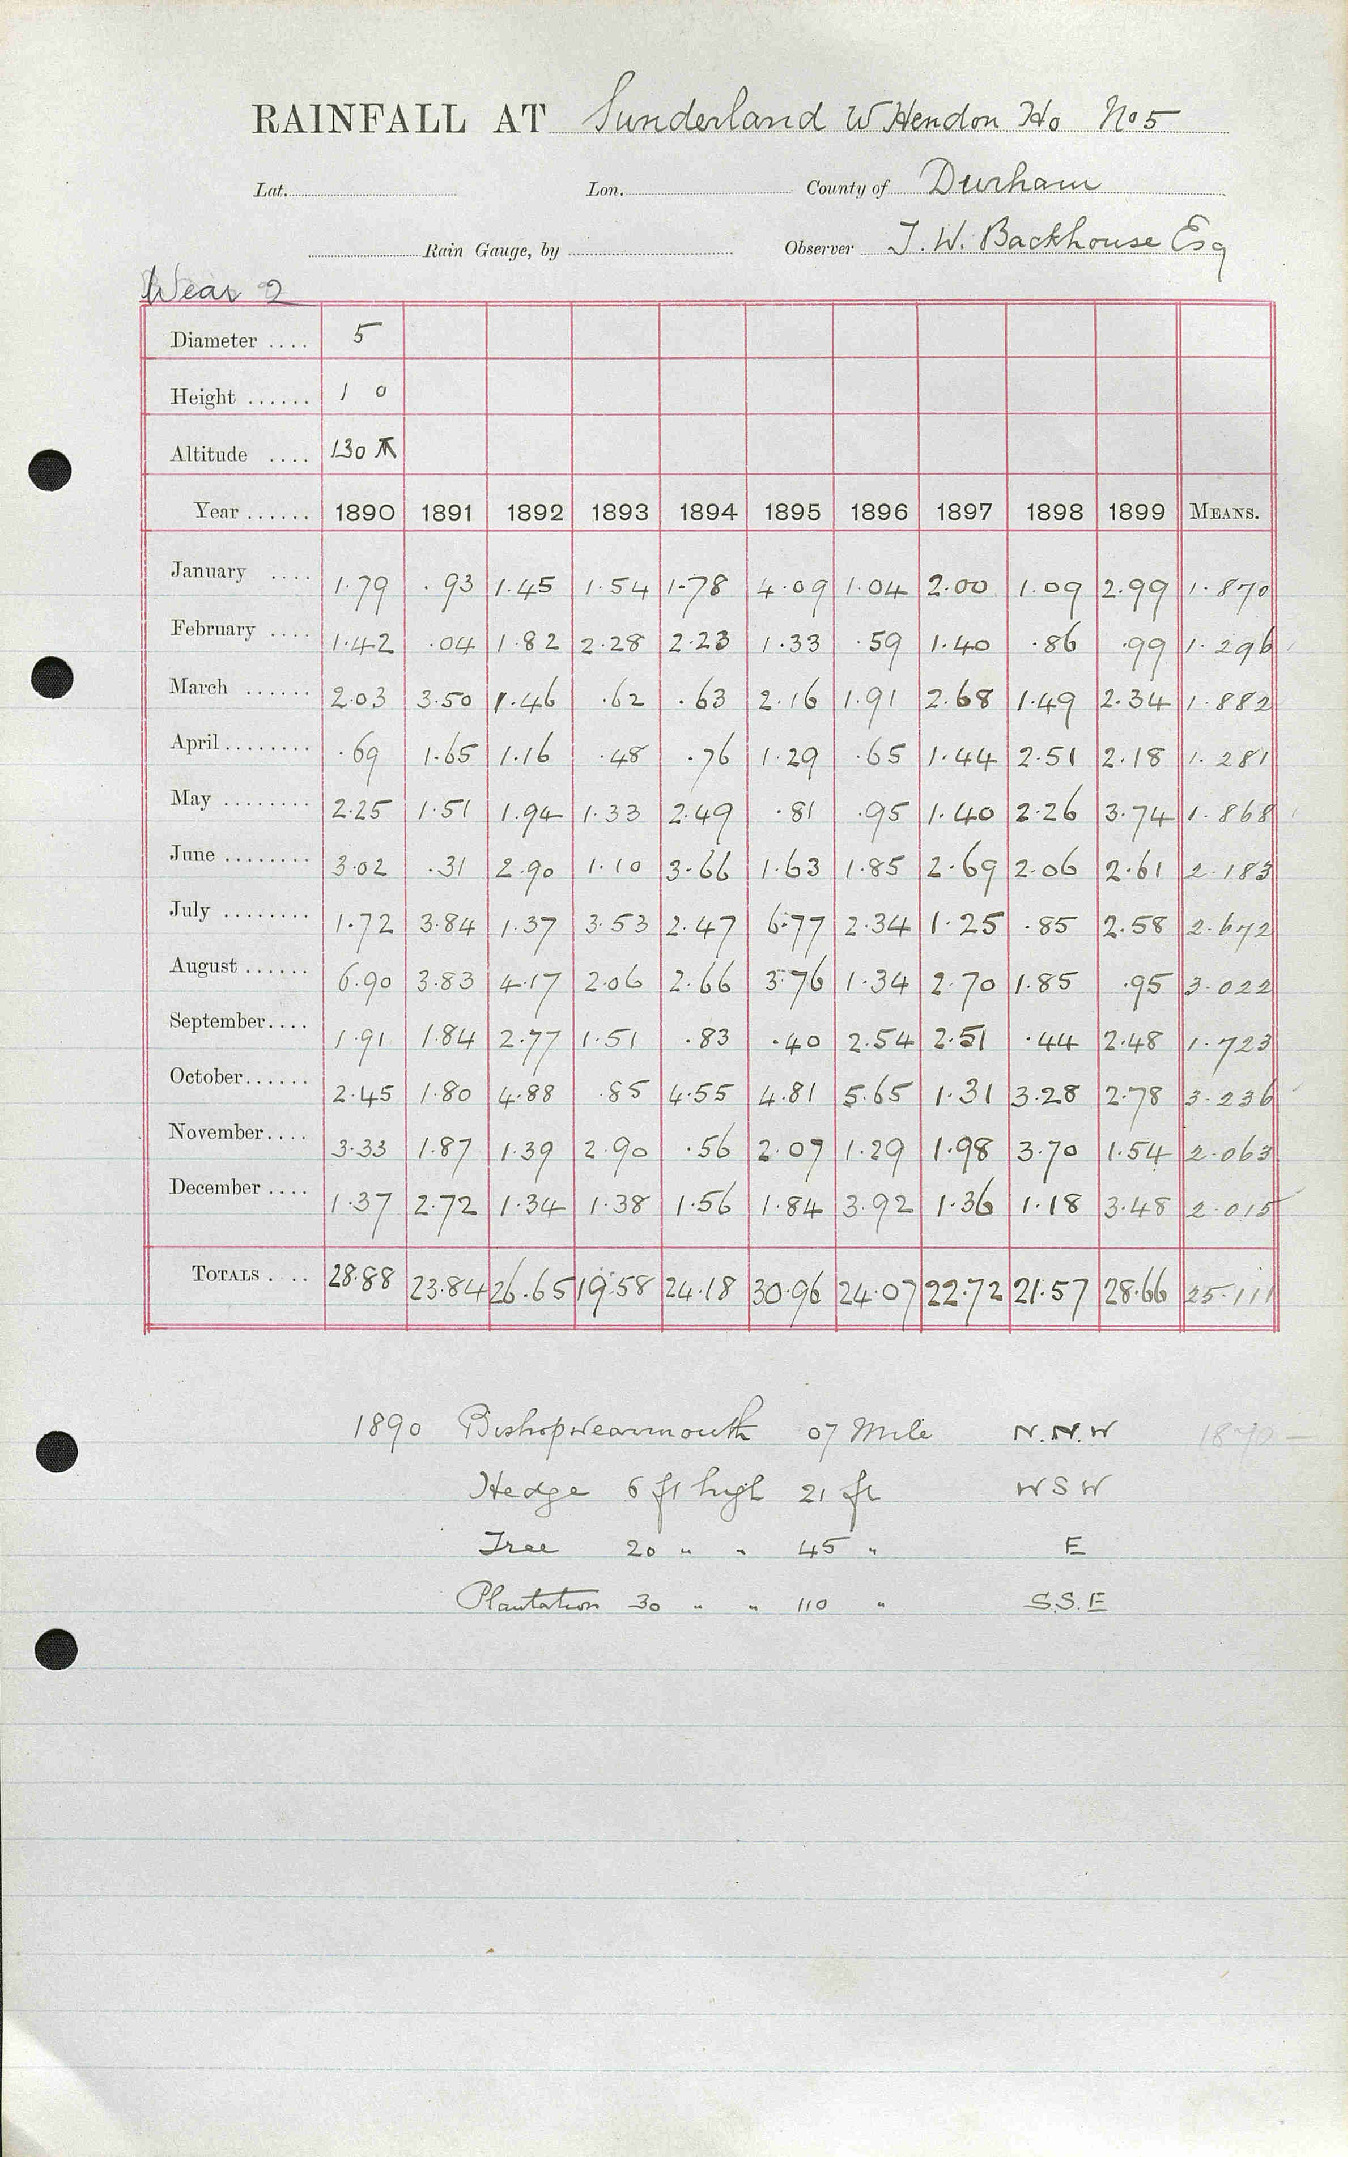 RAINFALL AT Sunderland W Hendon Ho No 5
Lat. Lon. County of Durham
Rain Gauge, by Observer T. W. Backhouse Esq
Wear 2
Diameter .... 5
Height ...... 1 0
Altitude .... 130
Year ...... 1890 1891 1892 1893 1894 1895 1896 1897 1898 1899 MEANS.
January .... 1.79 .93 1.45 1.54 1.78 4.09 1.04 2.00 1.09 2.99 1.870
February .... 1.42 .04 1.82 2.28 2.23 1.33 .59 1.40 .86 .99 1.296
March ...... 2.03 3.50 1.46 .62 .63 2.16 1.91 2.68 1.49 2.34 1.882
April ........ .69 1.65 1.16 .48 .76 1.29 .65 1.44 2.51 2.18 1.281
May ........ 2.25 1.51 1.94 1.33 2.49 .81 .95 1.40 2.26 3.74 1.868
June ........ 3.02 .31 2.90 1.10 3.66 1.63 1.85 2.69 2.06 2.61 2.183
July ........ 1.72 3.84 1.37 3.53 2.47 6.77 2.34 1.25 .85 2.58 2.672
August ...... 6.90 3.83 4.17 2.06 2.66 3.76 1.34 2.70 1.85 .95 3.022
September.... 1.91 1.84 2.77 1.51 .83 .40 2.54 2.51 .44 2.48 1.723
October...... 2.45 1.80 4.88 .85 4.55 4.81 5.65 1.31 3.28 2.78 3.236
November.... 3.33 1.87 1.39 2.90 .56 2.07 1.29 1.98 3.70 1.54 2.063
December .... 1.37 2.72 1.34 1.38 1.56 1.84 3.92 1.36 1.18 3.48 2.015
TOTALS .... 28.88 23.84 26.65 19.58 24.18 30.96 24.07 22.72 21.57 28.66 25.111
1890 Bishopwearmouth 07 Mile N.N.W 1890 –
Hedge 6 ft high 21 ft W S W
Tree 20 " " 45 " E
Plantation 30 " " 110 " S.S.E